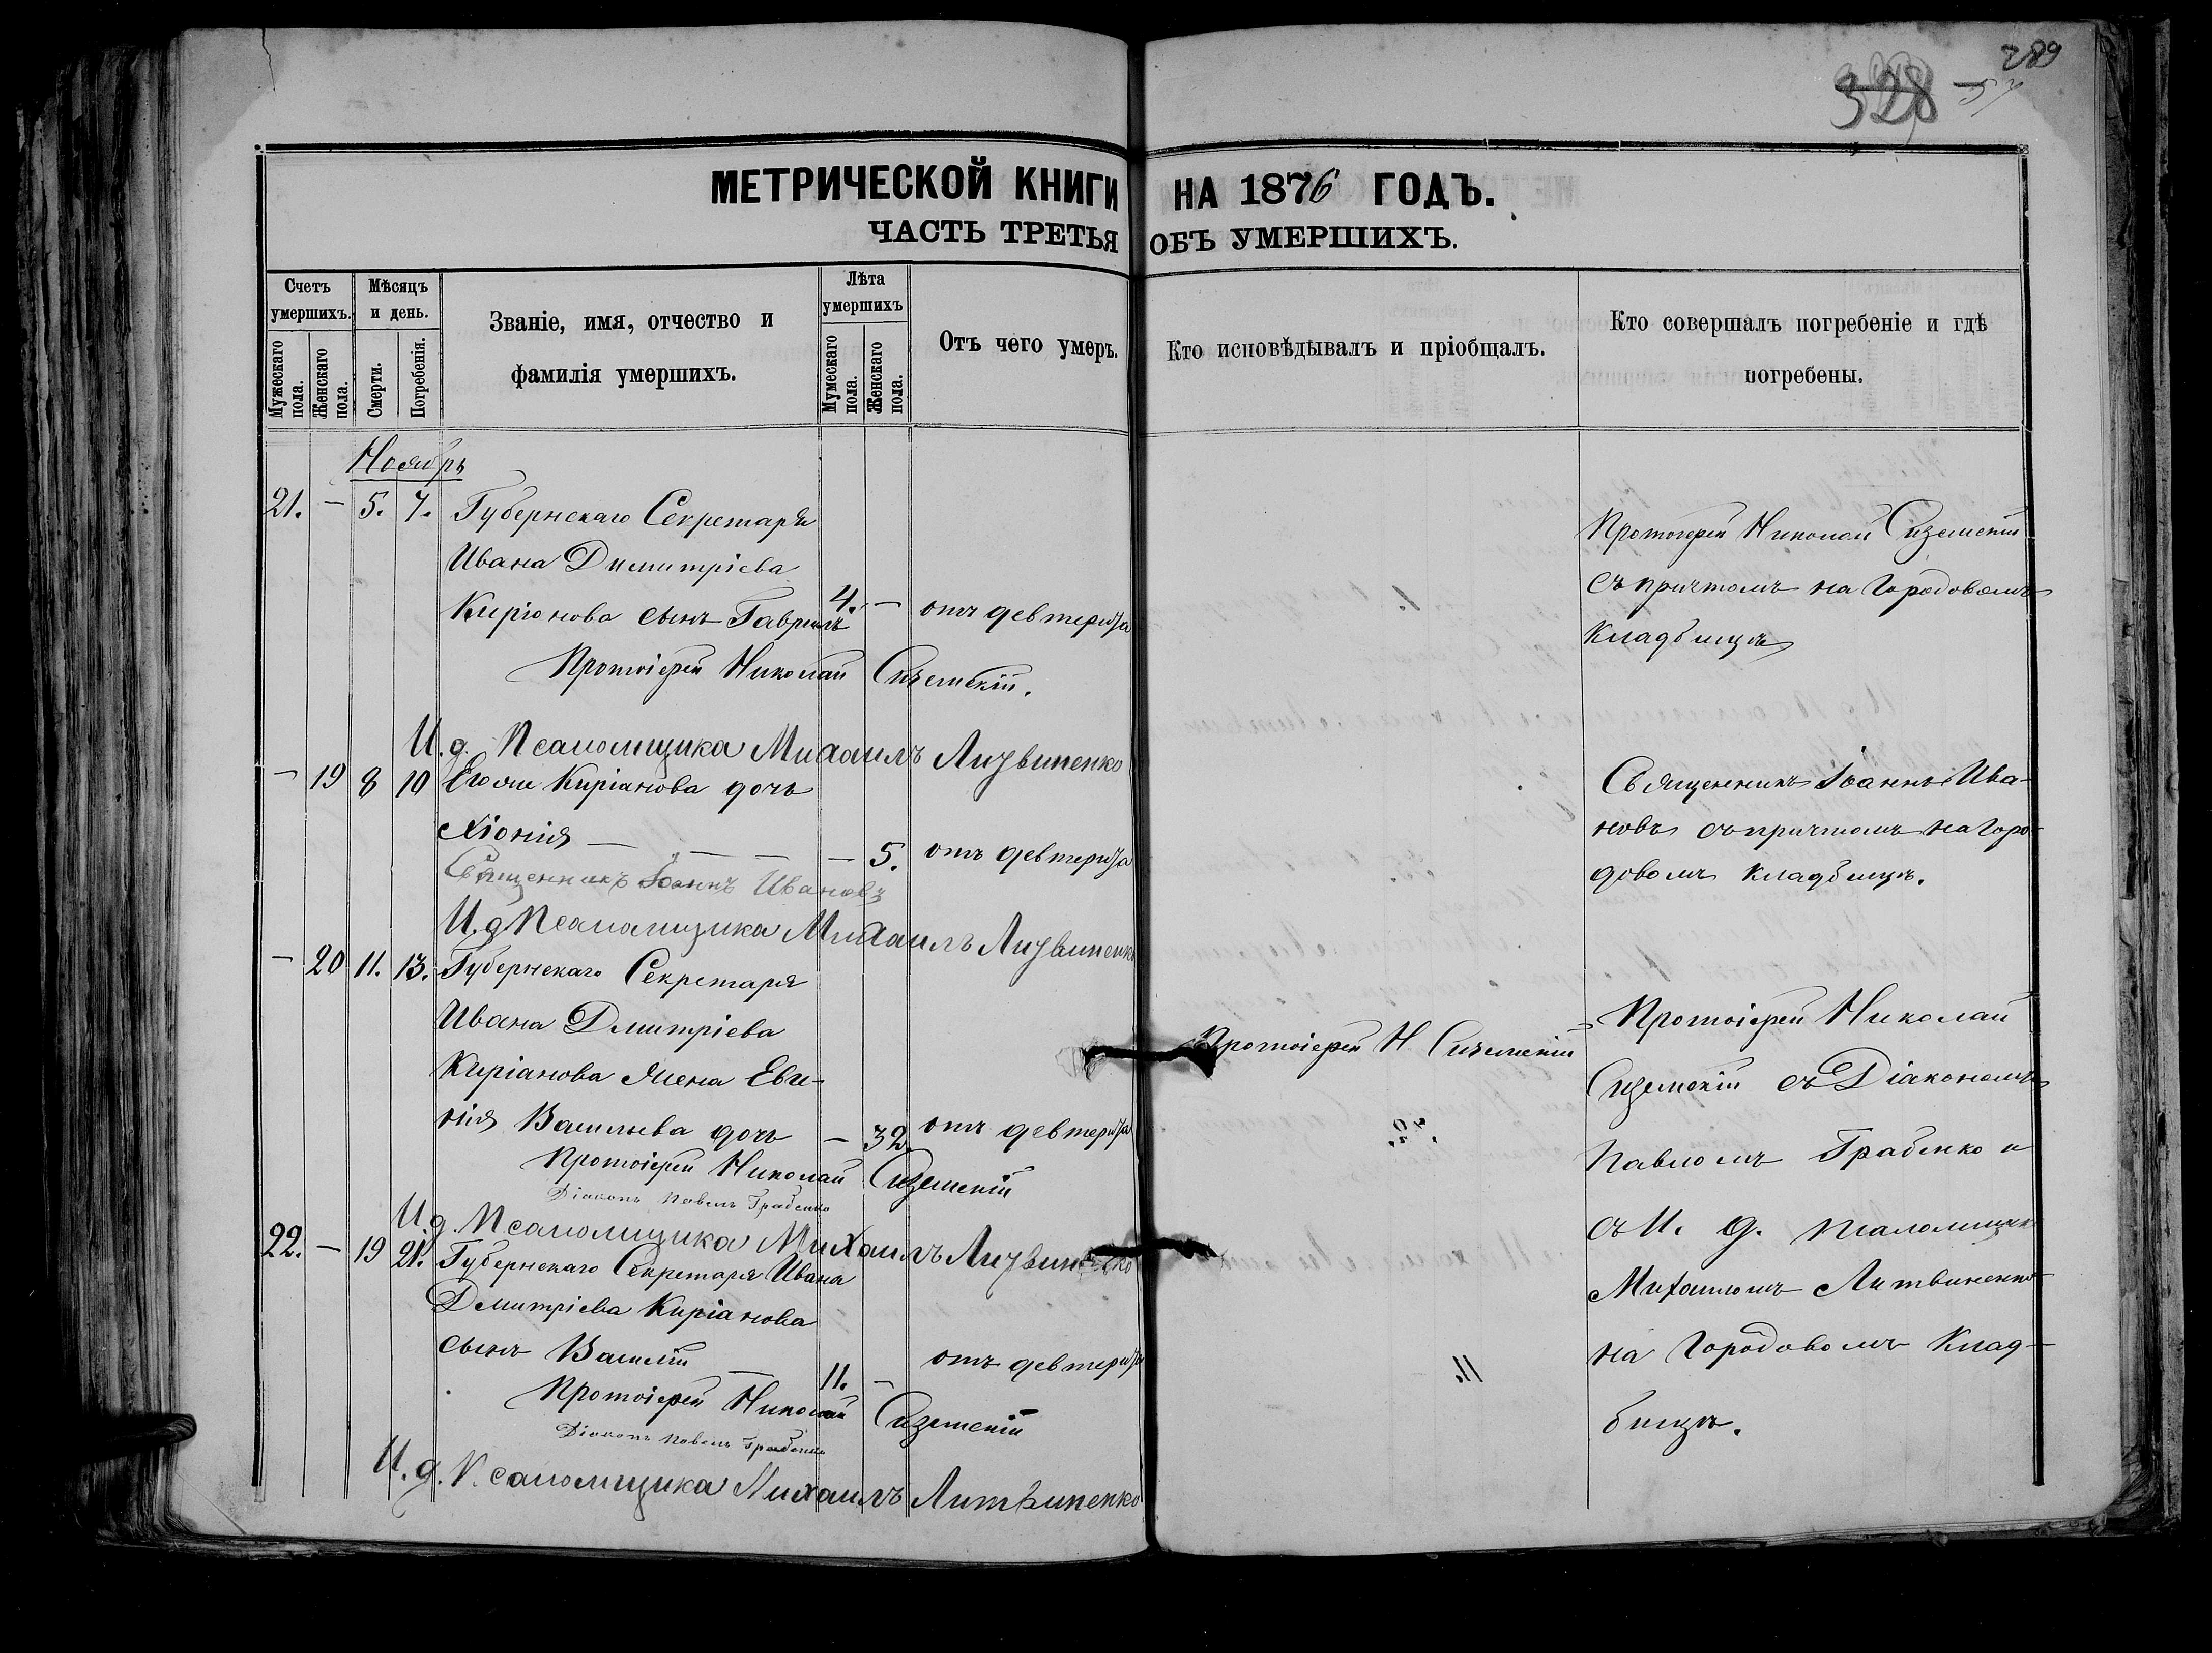 289
328
МЕТРИЧЕСКОЙ КНИГИ НА 1876 ГОДЪ.
ЧАСТЬ ТРЕТЬЯ ОБЪ УМЕРШИХЪ.
Счетъ умершихъ.
Мужескаго пола.
Женскаго пола.
Мѣсяцъ и день.
Смерти.
Погребенія.
Званіе, имя, отчество и
фамилія умершихъ.
Лѣта умершихъ
Мужескаго пола.
Женскаго пола.
Отъ чего умеръ.
Кто исповѣдывалъ и пріобщалъ.
Кто совершалъ погребеніе и гдѣ
погребены.
Ноябрь
21. — 5. 7. Губернскаго Секретаря
Ивана Димитріева
Киріонова сынъ Гавріилъ 4. — отъ девтерита
Протоіерей Николай Сиземскій.
И. д. Псаломщика Михаилъ Литвиненко
Протоіерей Николай Сиземскій
съ причтомъ на Городовомъ
Кладбищѣ
— 19 8 10 Егоже Киріанова дочь
Хіонія — — — — 5. отъ девтерита
Священникъ Іоаннъ Ивановъ
И. д. Псаломщика Михаилъ Литвиненко
Священникъ Іоаннъ Ива-
новъ съ причтомъ на Горо-
довомъ Кладбищѣ.
— 20 11. 13. Губернскаго Секретаря
Ивана Дмитріева
Киріанова жена Евге-
нія Васильева дочь — 32 отъ девтерита
Протоіерей Николай Сиземскій
Діаконъ Павелъ Грабенко
И. д. Псаломщика Михаилъ Литвиненко
Протоіерей Н. Сиземскій
22. — 19 21. Губернскаго Секретаря Ивана
Дмитріева Киріанова
сынъ Василій — 11. — отъ девтерита
Протоіерей Николай Сиземскій
Діаконъ Павелъ Грабенко
И. д. Псаломщика Михаилъ Литвиненко
Протоіерей Николай
Сиземскій съ Діакономъ
Павломъ Грабенко и
съ И. д. псаломщика
Михаиломъ Литвиненко
на Городовомъ Клад-
бищѣ.